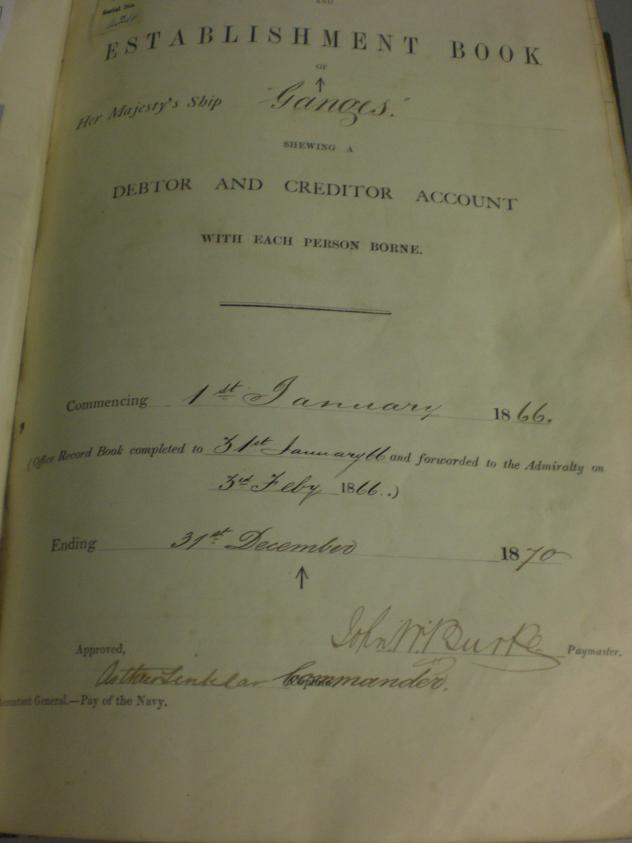 Serial No.
AND
ESTABLISHMENT BOOK
OF
Her Majesty's Ship "Ganges."
SHEWING A
DEBTOR AND CREDITOR ACCOUNT
WITH EACH PERSON BORNE.
Commencing 1st January 1866.
(Office Record Book completed to 31st January 66 and forwarded to the Admiralty on
3rd Feby 1866.)
Ending 31st December 1870
John W. Burke Paymaster.
Approved,
Arthur Commander.
General.—Pay of the Navy.